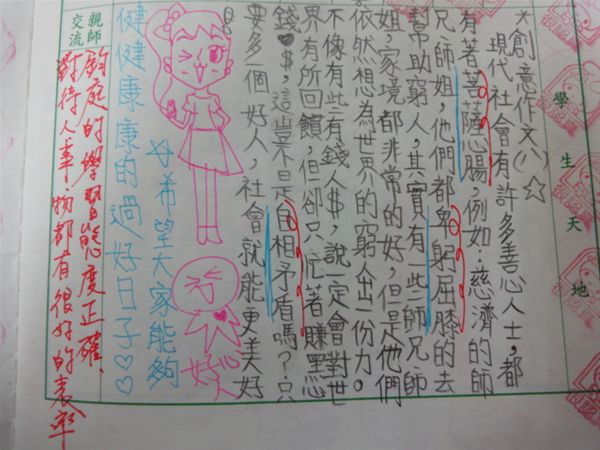 學生天地
☆創意作文(八)☆
現代社會有許多善心人士,都
有著菩薩心腸,例如:慈濟的師
兄師姐,他們都卑躬屈膝的去
幫助窮人,其實有一些師兄師
姐,家境都非常的好,但是他們
依然想為世界的窮人出一份力。
不像有些有錢人$,說一定會對世
界有所回饋,但卻只忙著賺黑心
錢♥$,這豈不是自相矛盾嗎?只
要多一個好人,社會就能更美好
。
好人
希望大家能夠
健健康康的過好日子♡♡
親師交流
鈞庭的學習態度正確、
對待人事物都有很好的表率